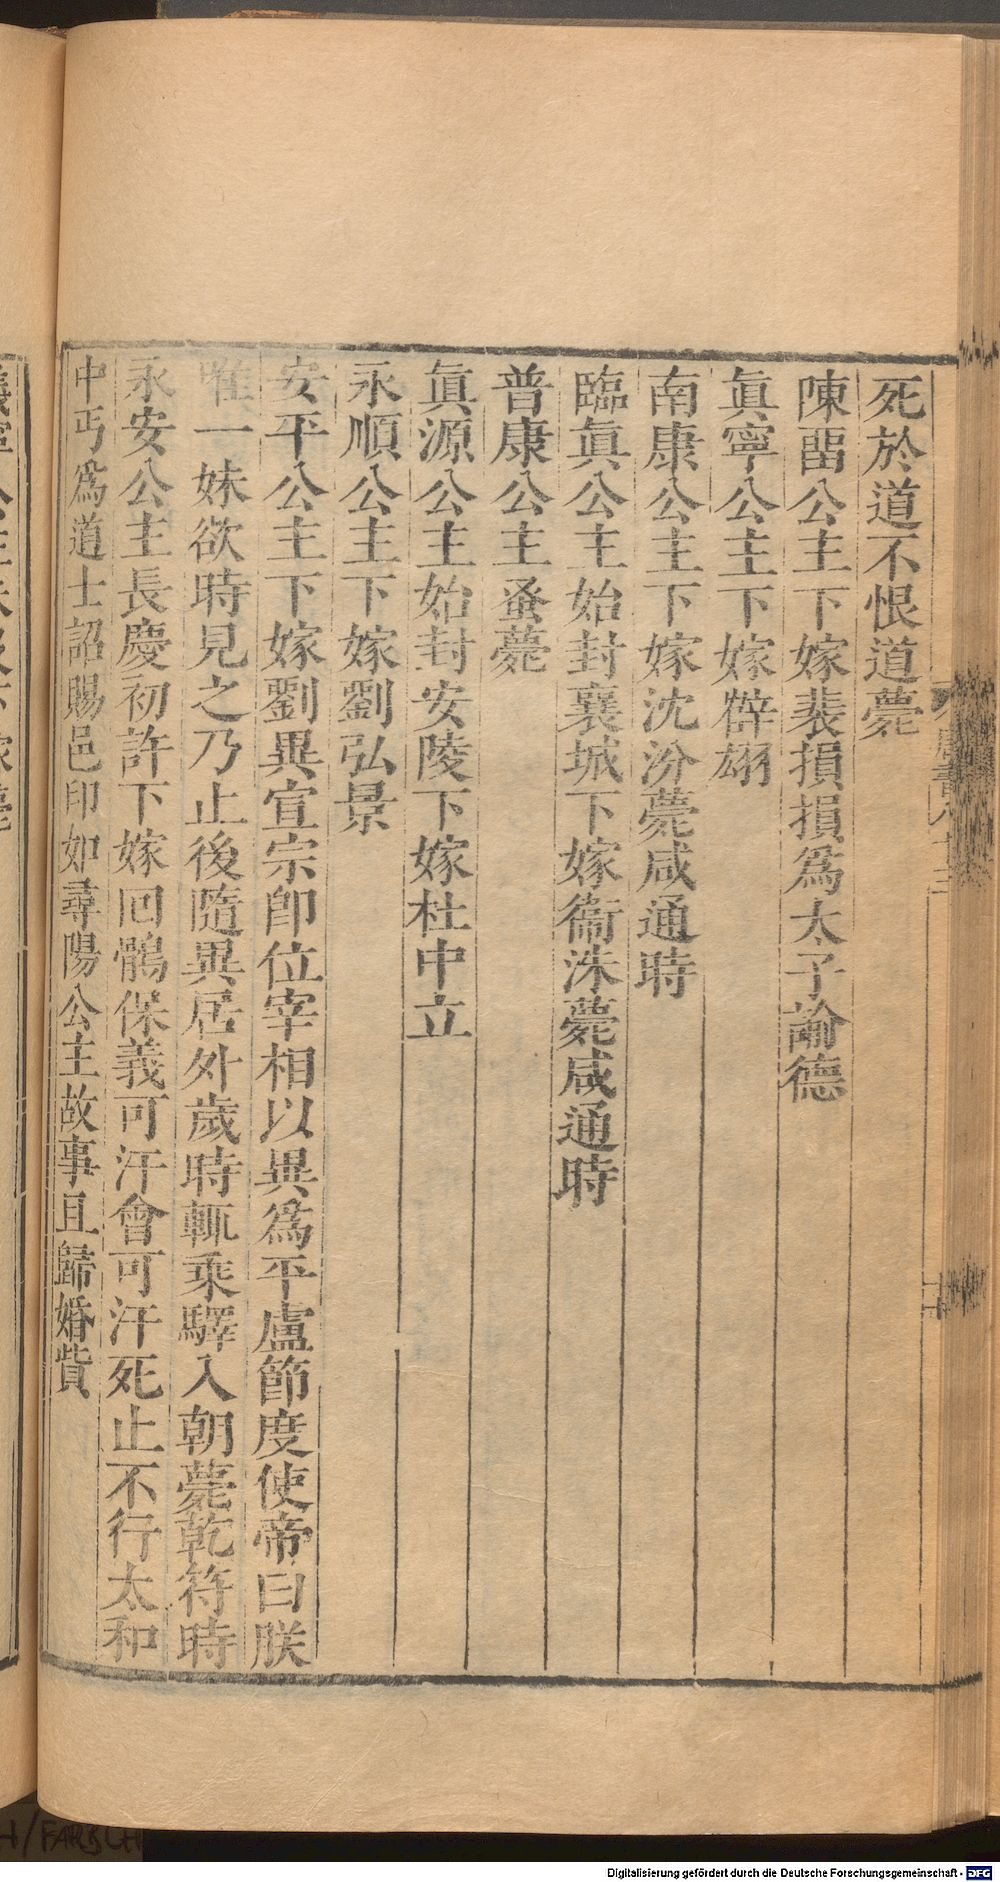 死於道不恨道薨
陳畱公主下嫁裴損損爲太子諭德
眞寧公主下嫁薛翃
南康公主下嫁沈汾薨咸通時
臨眞公主始封襄城下嫁衞洙薨咸通時
普康公主蚤薨
眞源公主始封安陵下嫁杜中立
永順公主下嫁劉弘景
安平公主下嫁劉異宣宗卽位宰相以異爲平盧節度使帝曰朕
唯一妹欲時見之乃止後隨異居外歲時輒乘驛入朝薨乾符時
永安公主長慶初許下嫁回鶻保義可汗會可汗死止不行太和
中丐爲道士詔賜邑印如尋陽公主故事且歸婚貲
Digitalisierung gefördert durch die Deutsche Forschungsgemeinschaft - DFG